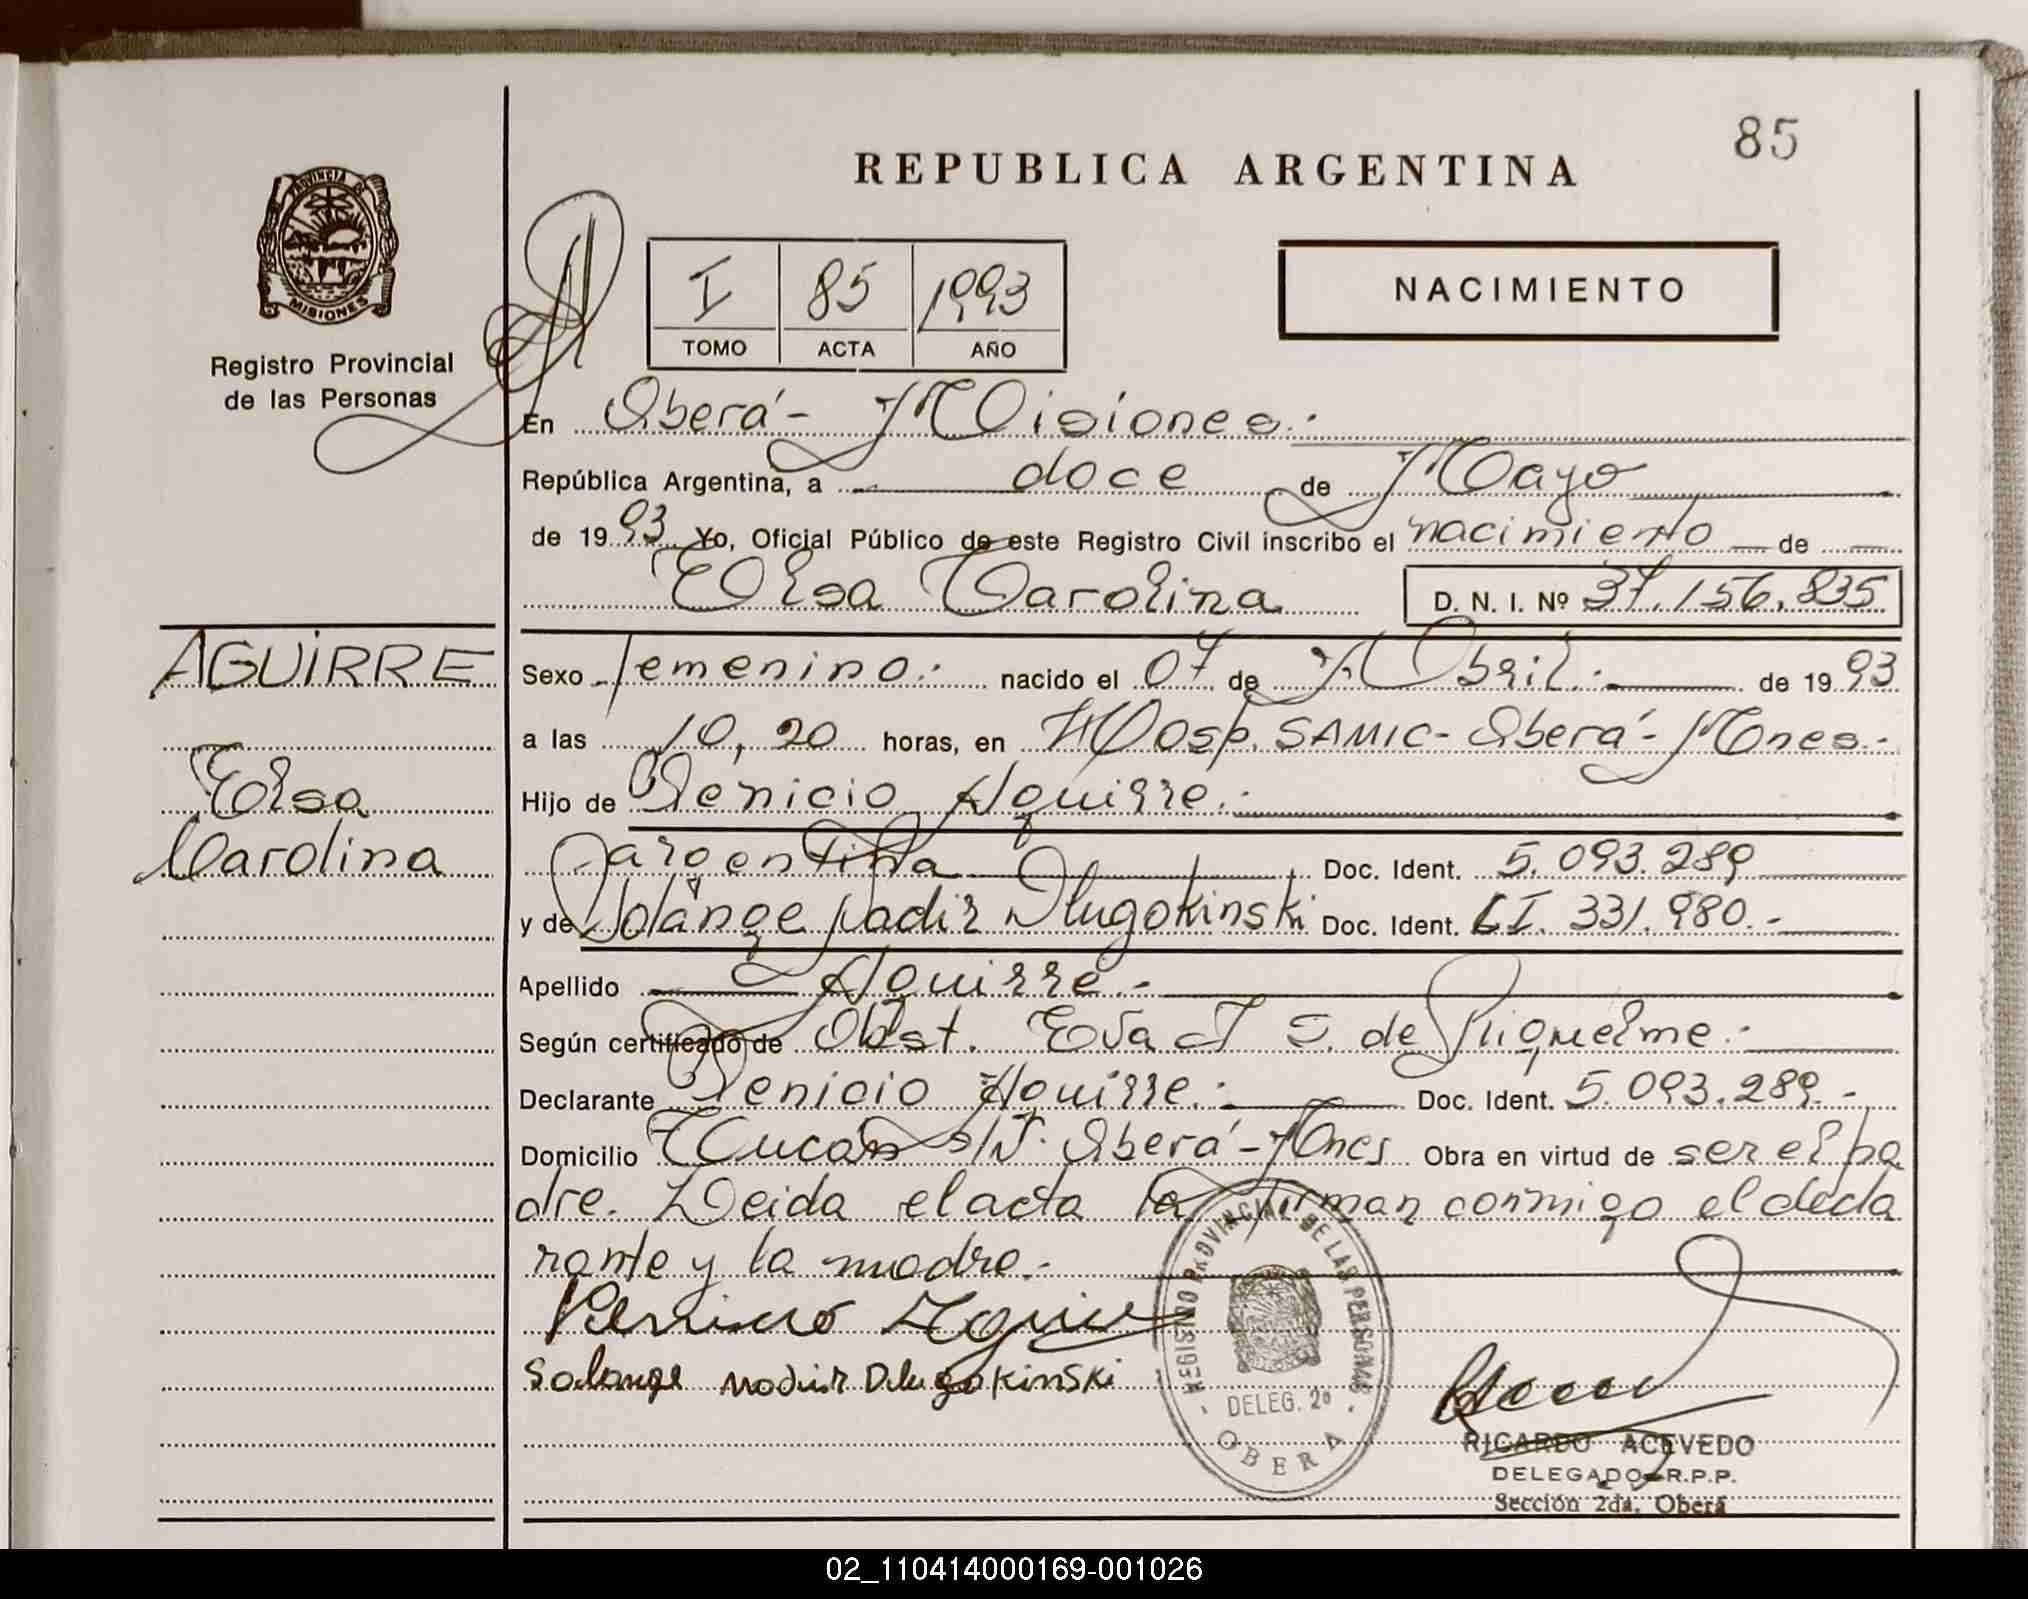 85
REPUBLICA ARGENTINA
PROVINCIA DE
MISIONES
Registro Provincial
de las Personas
I 85 1993
TOMO ACTA AÑO
NACIMIENTO
En Oberá- Misiones.-
República Argentina, a doce de Mayo
de 1993 Yo, Oficial Público de este Registro Civil inscribo el nacimiento de
Elsa Carolina D. N. I. Nº 37.156.835
AGUIRRE
Elsa
Carolina
Sexo femenino.- nacido el 07 de Abril.- de 1993
a las 10,20 horas, en Hosp. SAMIC- Oberá- Mnes.-
Hijo de Renicio Aguirre.-
argentina Doc. Ident. 5.093.289
y de Solange Nadir Dlugokinski Doc. Ident. CI. 331.980.-
Apellido Aguirre.-
Según certificado de Obst. Eva J S. de Riquelme.-
Declarante Renicio Aguirre.- Doc. Ident. 5.093.289.-
Domicilio Tucán s/N. Oberá- Mnes Obra en virtud de ser el pa
dre. Leida el acta la firman conmigo el decla
rante y la madre.-
Solange Nadir Dlugokinski
REGISTRO PROVINCIAL DE LAS PERSONAS
- DELEG. 2ª -
OBERA
RICARDO ACEVEDO
DELEGADO R.P.P.
Sección 2da. Oberá
02_110414000169-001026